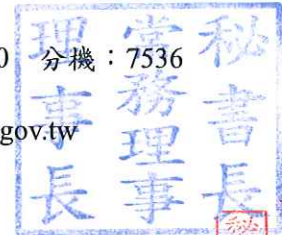 0 分機：7536
gov.tw
秘書長
常務理事
理事長
秘